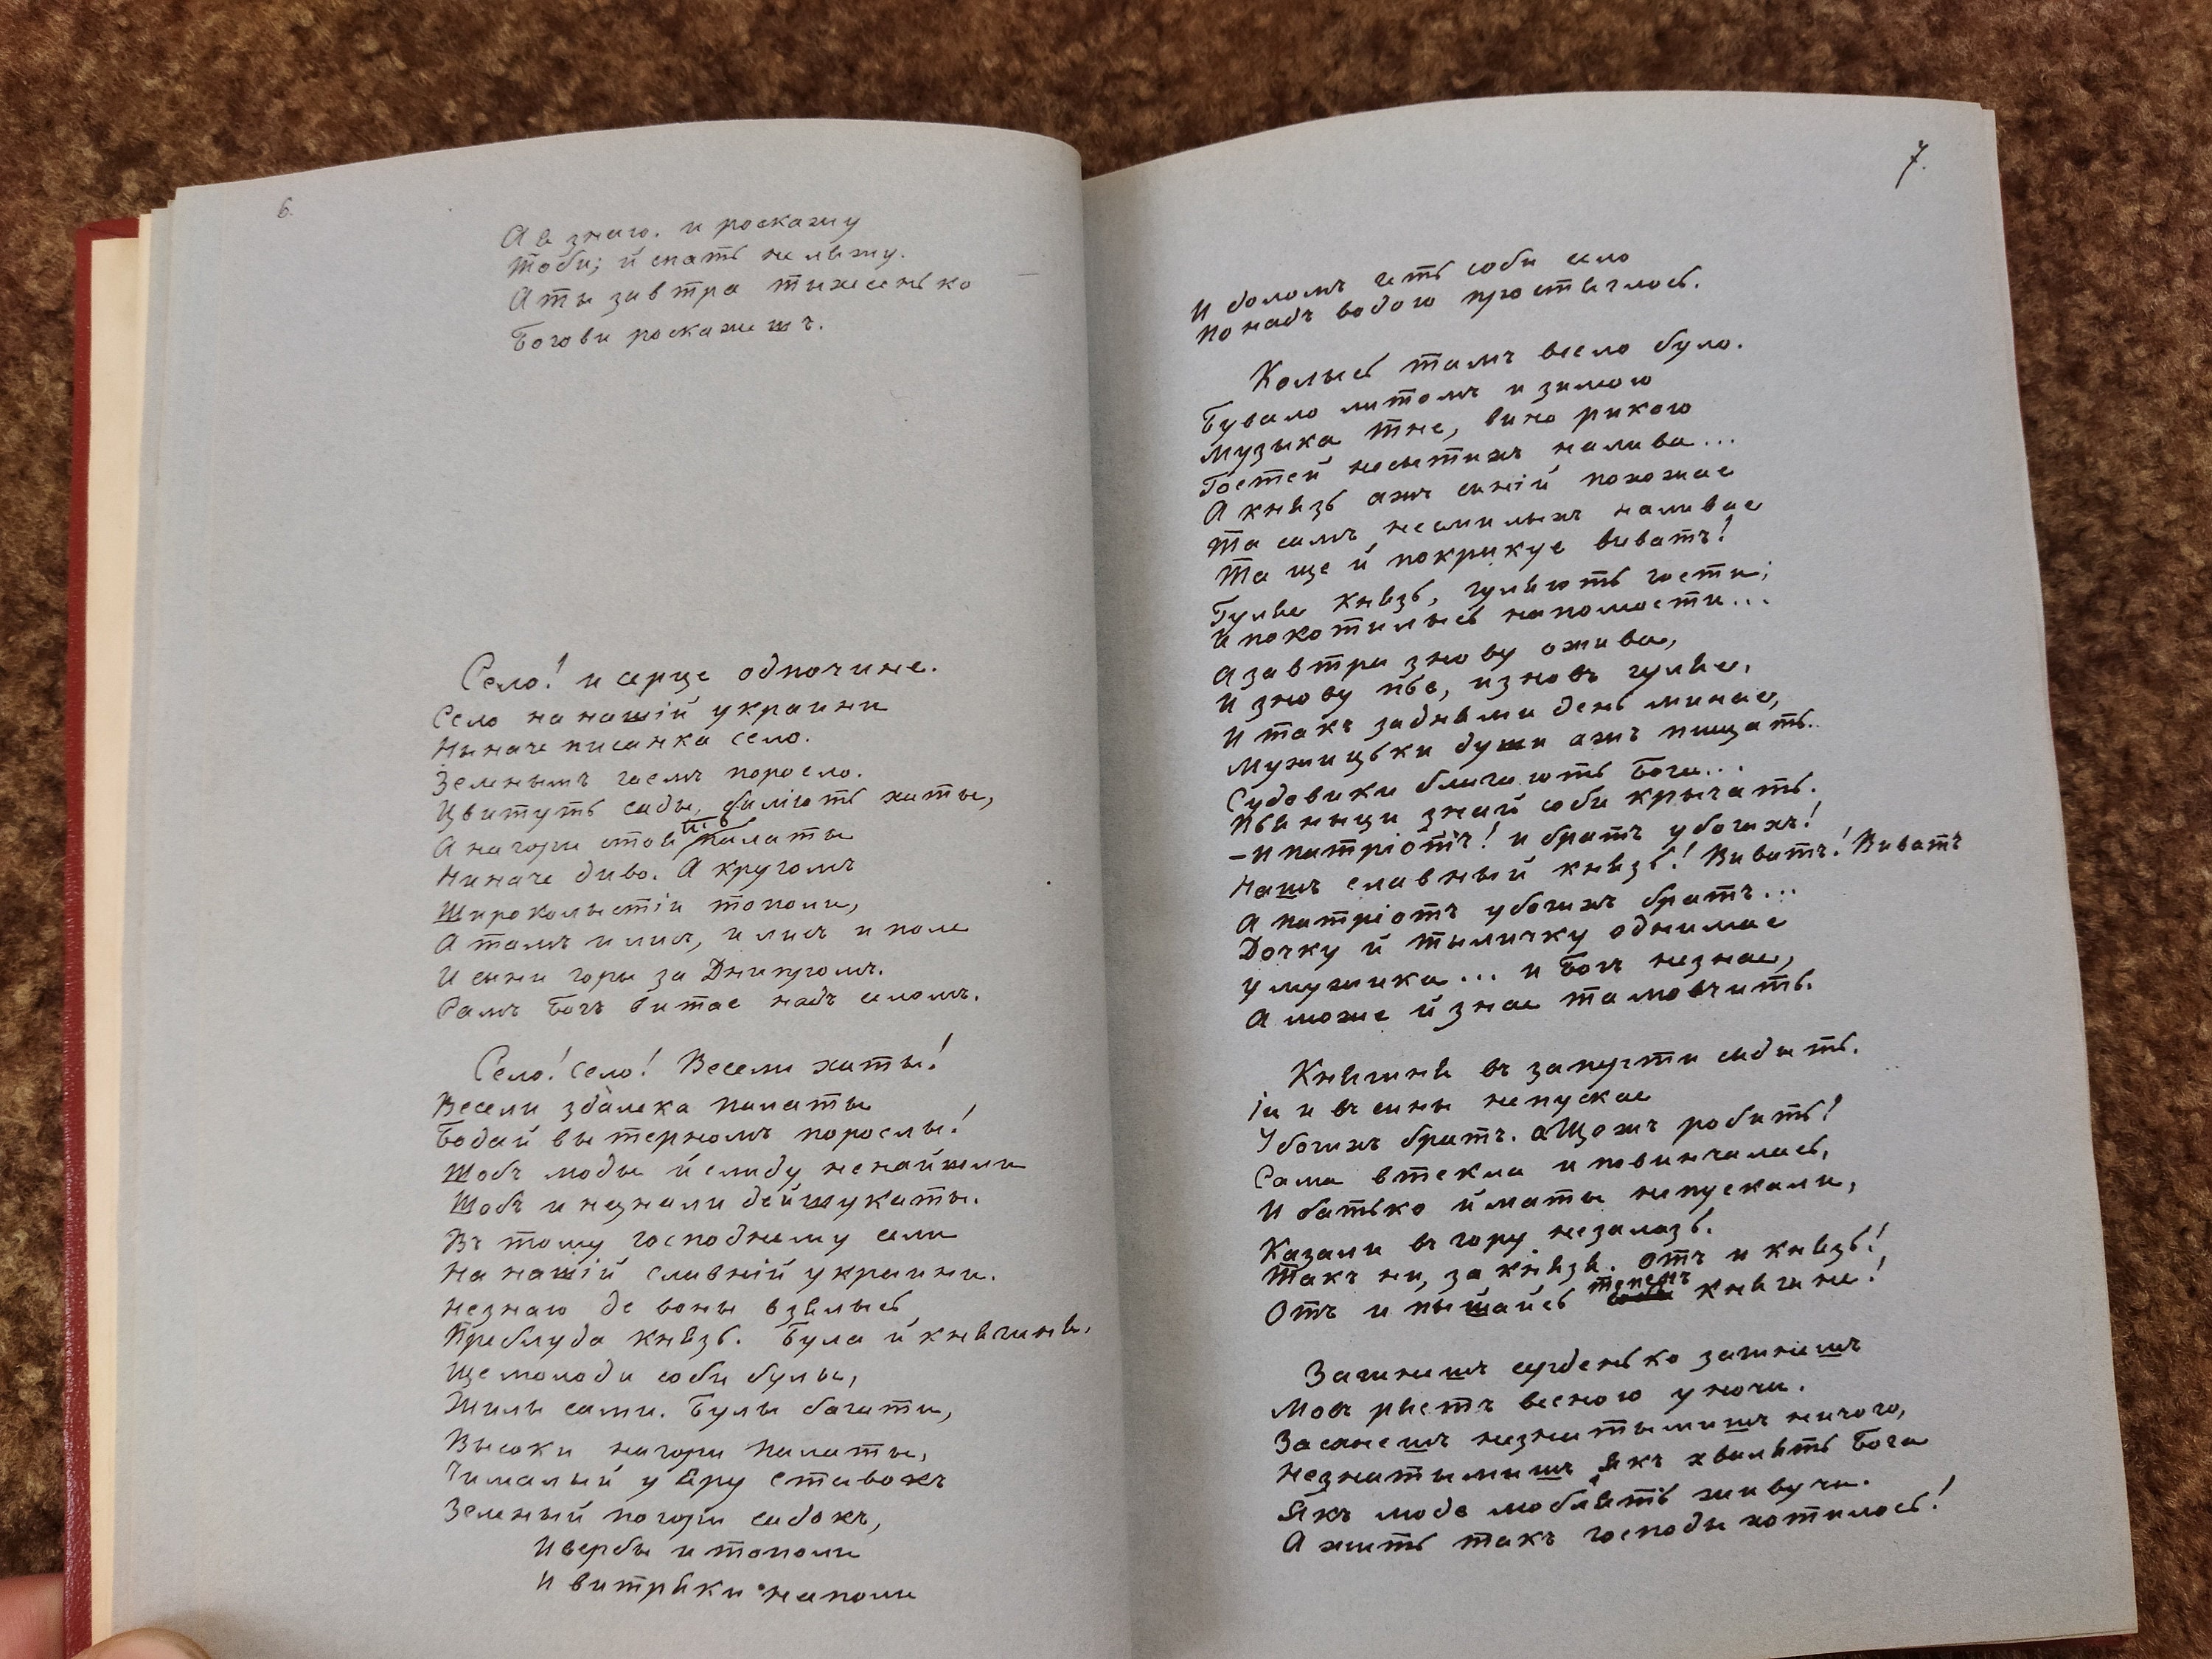 6.
А я знаю. и роскажу
Тоби; й спать не ляжу.
А ты завтра тыхесенько
Богови роскажешъ.
Село! и серце одпочине.
Село на нашій украини
Ныначе писанка село.
Зеленымъ гаемъ поросло.
Цвитуть сады, билїють хаты,
А на гори стоять палаты
Ниначе диво. А кругомъ
Широколыстіи тополи,
А тамъ и лисъ, и лисъ и поле
И сыни горы за Днипромъ.
Самъ Богъ витае надъ селомъ.
Село! село! Весели хаты!
Весели здалека палаты
Бодай вы терномъ поросли!
Щобъ люды й слиду ненайшли
Щобъ и незнали де й шукаты.
Въ тому господнему сели
На нашій славній украини.
Незнаю де воны взялысь
Приблуда князь. Була й княгиня,
Ще молоди соби булы,
Жилы сами. Булы багати,
Высоки на гори палаты,
Чималый у яру ставокъ
Зеленый по гори садокъ,
И вербы и тополи
И витряки на поли
7.
И доломъ геть соби село
Понадъ водою простяглось.
Колысь тамъ весело було.
Бувало литомъ и зимою
Музыка тне, вино рикою
Гостей неситихъ налива...
А князь ажъ синій похожае
Та самъ несмилыхъ наливае
Та ще й покрикуе виватъ!
Гуляе князь, гуляють гости;
И покотилысь на помости...
А завтра знову ожива,
И знову пье, и зновъ гуляе,
И такъ за днями день минае,
Мужицьки души ажъ пищать.
Судовики благають Бога...
Пьяныци знай соби крычать.
— И патріотъ! и братъ убогихъ!
Нашъ славный князь! Виватъ! Виватъ
А патріотъ убогихъ братъ...
Дочку й тыличку однимае
у мужика... и Богъ незнае,
А може й знае та мовчить.
Княгиня въ запертти сидить.
Іи и въ сины непускае
Убогихъ братъ. а Щожъ робить?
Сама втекла и повинчалась,
И батько й маты непускали,
Казали въ гору незалазь.
Такъ ни, за князя. Отъ и князь!
Отъ и пышайсь теперъ княгине!
Загинешъ серденько загинешъ
Мовъ рястъ весною уночи.
Засхнешъ незнатымишъ ничого,
Незнатимишъ якъ хвалять Бога
Якъ люде люблять живучи.
А жить такъ господи хотилось!